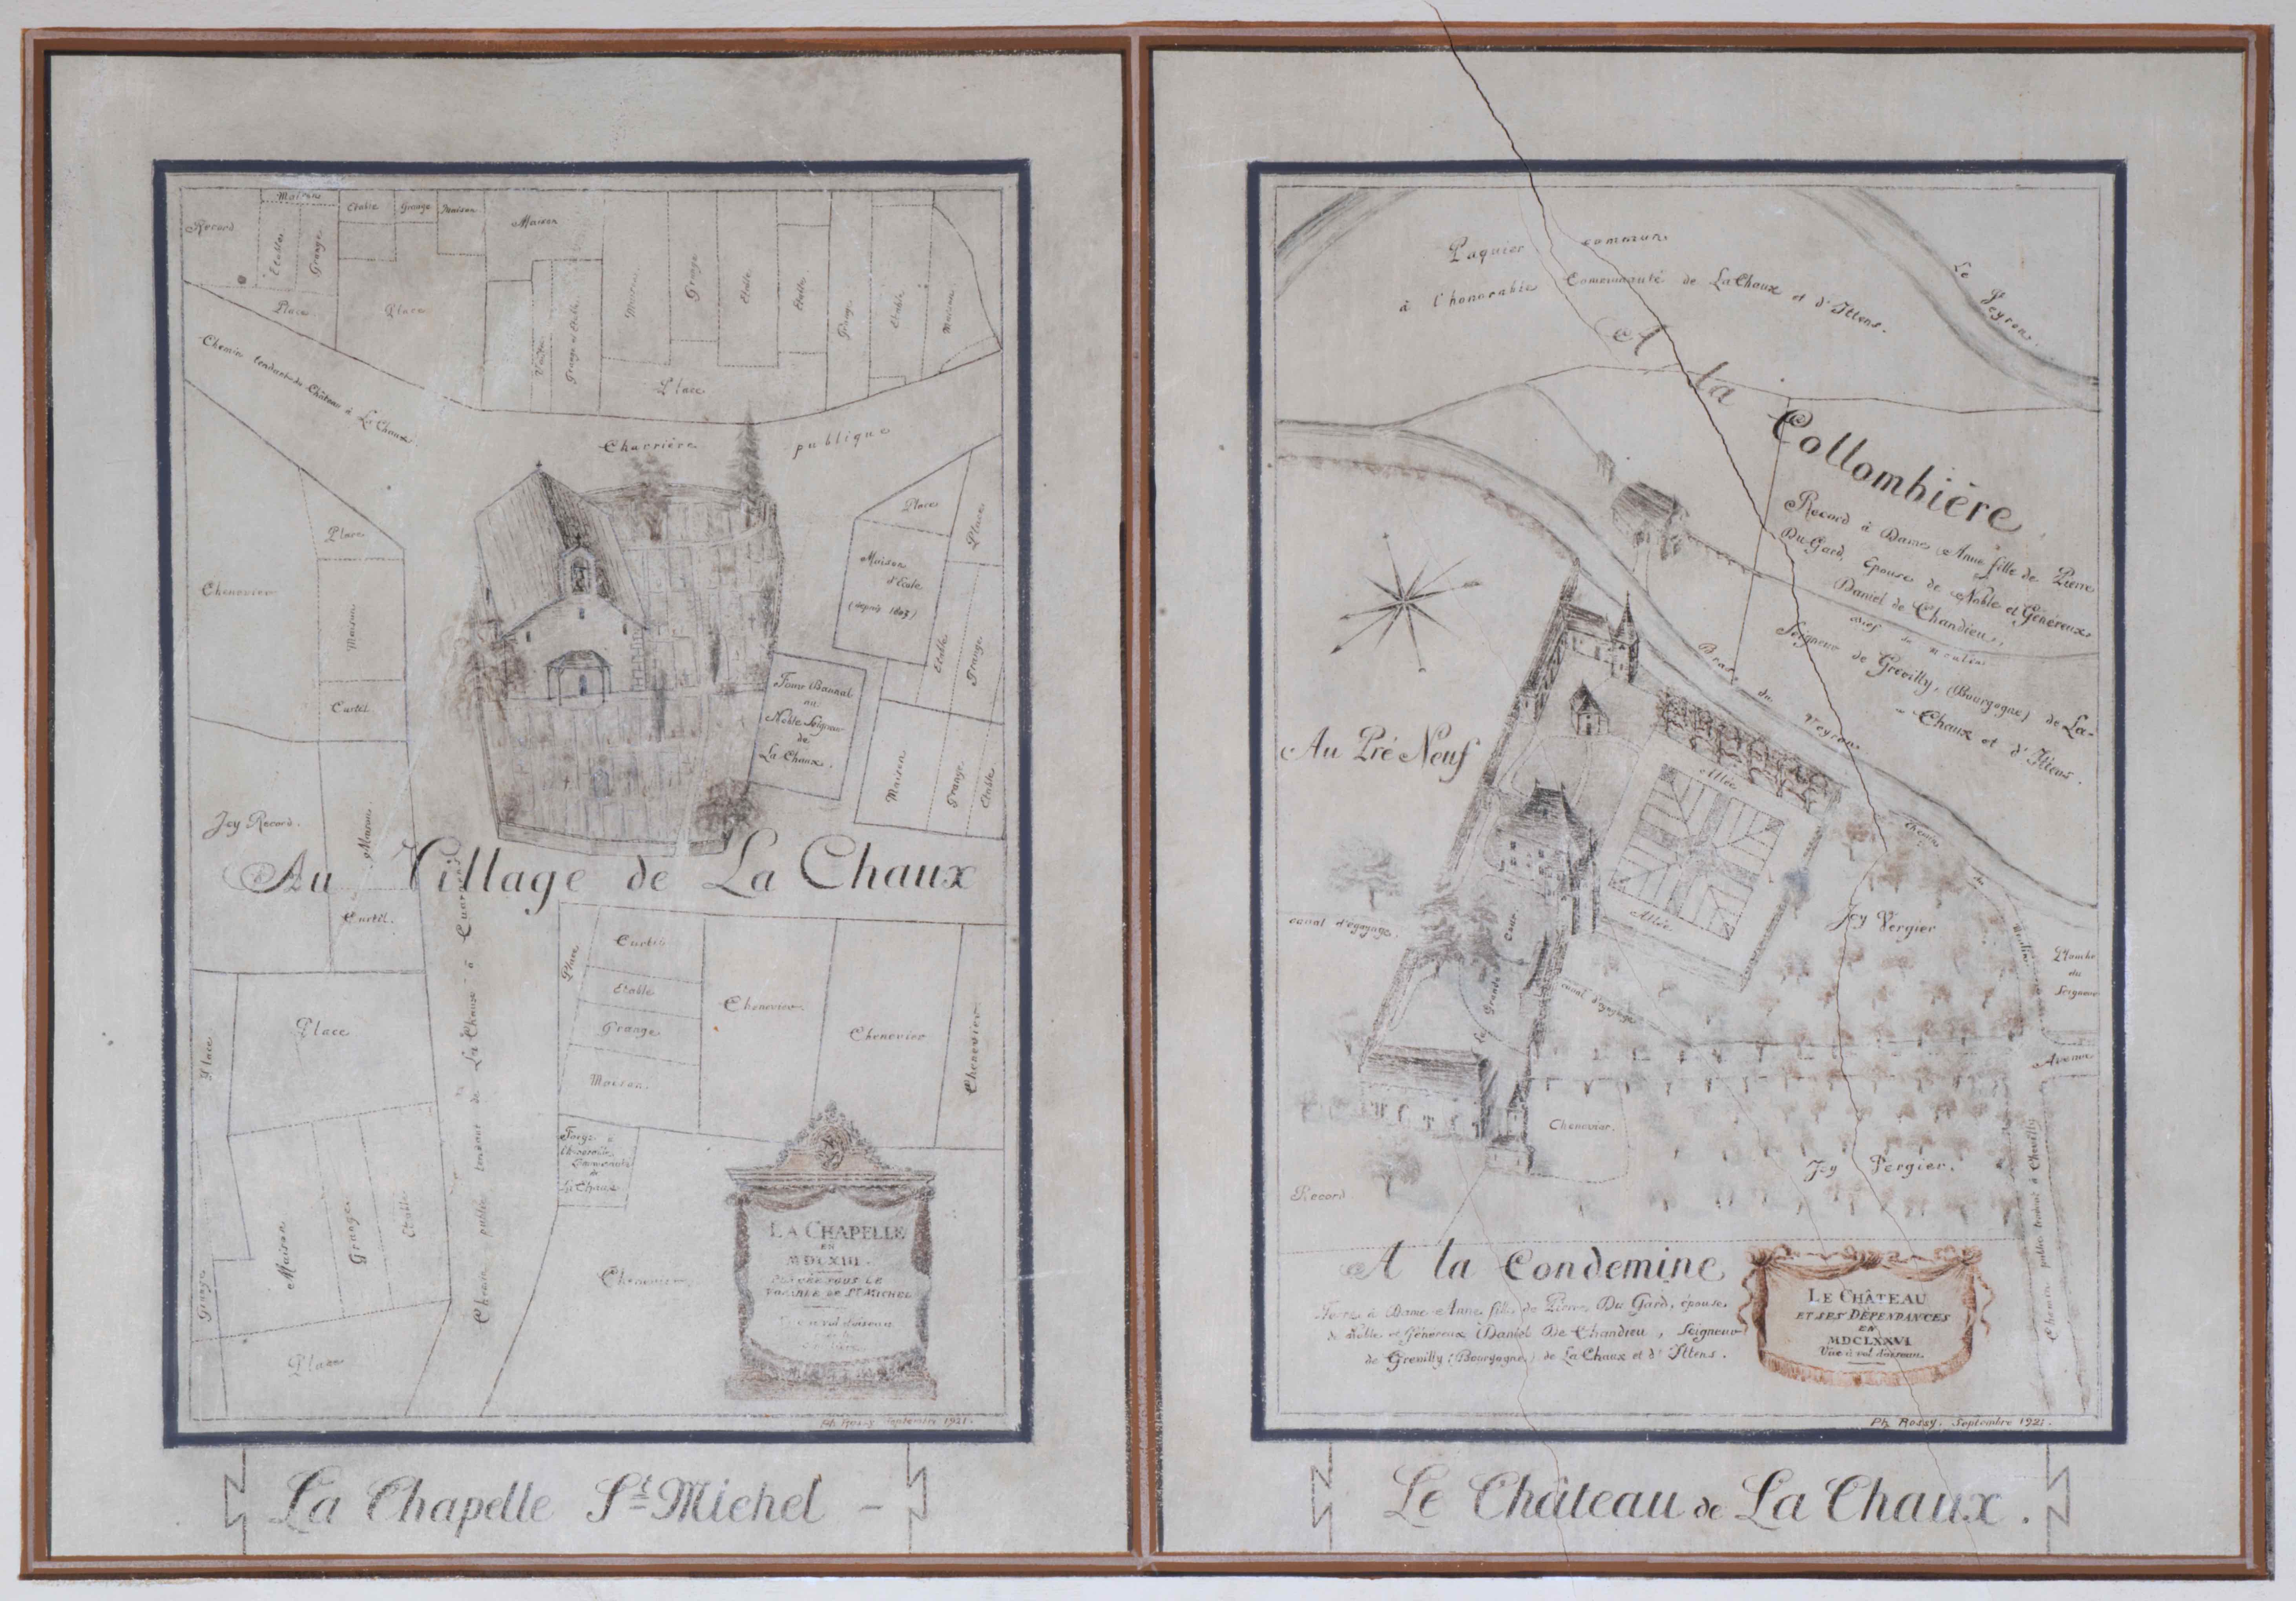 Record
Maison
Etable
Grange
Place
Etable
Grange
Maison
Place
Maison
Voûte
Grange et Etable
Maison
Grange
Etable
Etable
Grange
Etable
Maison
Place
Chemin tendant du Château à La Chaux.
Charrière publique
Chenevier
Place
Maison
Curtil
Place
Place
Maison
d'Ecole
(depuis
Etable
Grange
Four Bannal
au
Noble Seigneur
de
La Chaux.
Maison
Grange
Etable
Jcy Record.
Maison
Au Village de La Chaux
Curtil.
Place
Place
Maison
Grange
Etable
Grange
Place
Chemin public tendant de La Chaux à
Place
Curtil
Etable
Grange
Maison.
Chenevier
Chenevier
Chenevier
Forge
Communauté
de
La Chaux
Chenevier
LA CHAPELLE
EN
MDCXIII.
SOUS LE
DE St MICHEL
Ph. Rossy. Septembre 1921.
La Chapelle St Michel -
Paquier commun
à l'honorable Comunauté de La Chaux et d'Ittens.
Le Veyron.
A la Collombière
Record à Dame Anne fille de Pierre
Du Gard, épouse de Noble et Généreux
Daniel de Chandieu,
Seigneur de Grevilly, (Bourgogne) de La-
- Chaux et d'Ittens.
Bief du moulin
Bras du Veyron
Au Pré Neuf
Allée
Allée
canal d'égayage.
La Grande Cour
canal d'égayage
Jcy Vergier
Chemin du
Planche
du
Seigneur
Avenue
Chenevier.
Jcy Vergier.
Record
Chemin public tendant à Chevilly
A la Condemine
Terre à Dame Anne fille de Pierre Du Gard, épouse
de Noble et Généreux Daniel De Chandieu, Seigneur
de Grevilly (Bourgogne) de La Chaux et d'Ittens.
LE CHÂTEAU
ET SES DÉPENDANCES
EN
MDCLXXVI
Vue à vol d'oiseau.
Ph. Rossy. Septembre 1921.
Le Château de La Chaux.